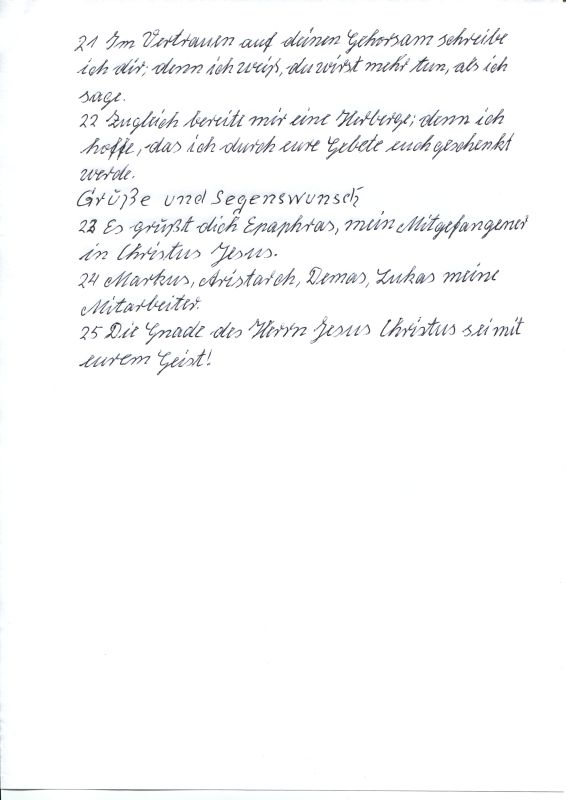 21 Im Vertrauen auf deinen Gehorsam schreibe
ich dir; denn ich weiß, du wirst mehr tun, als ich
sage.
22 Zugleich bereite mir eine Herberge; denn ich
hoffe, das ich durch eure Gebete euch geschenkt
werde.
Grüße und Segenswunsch
23 Es grüßt dich Epaphras, mein Mitgefangener
in Christus Jesus.
24 Markus, Aristarch, Demas, Lukas meine
Mitarbeiter.
25 Die Gnade des Herrn Jesus Christus sei mit
eurem Geist!